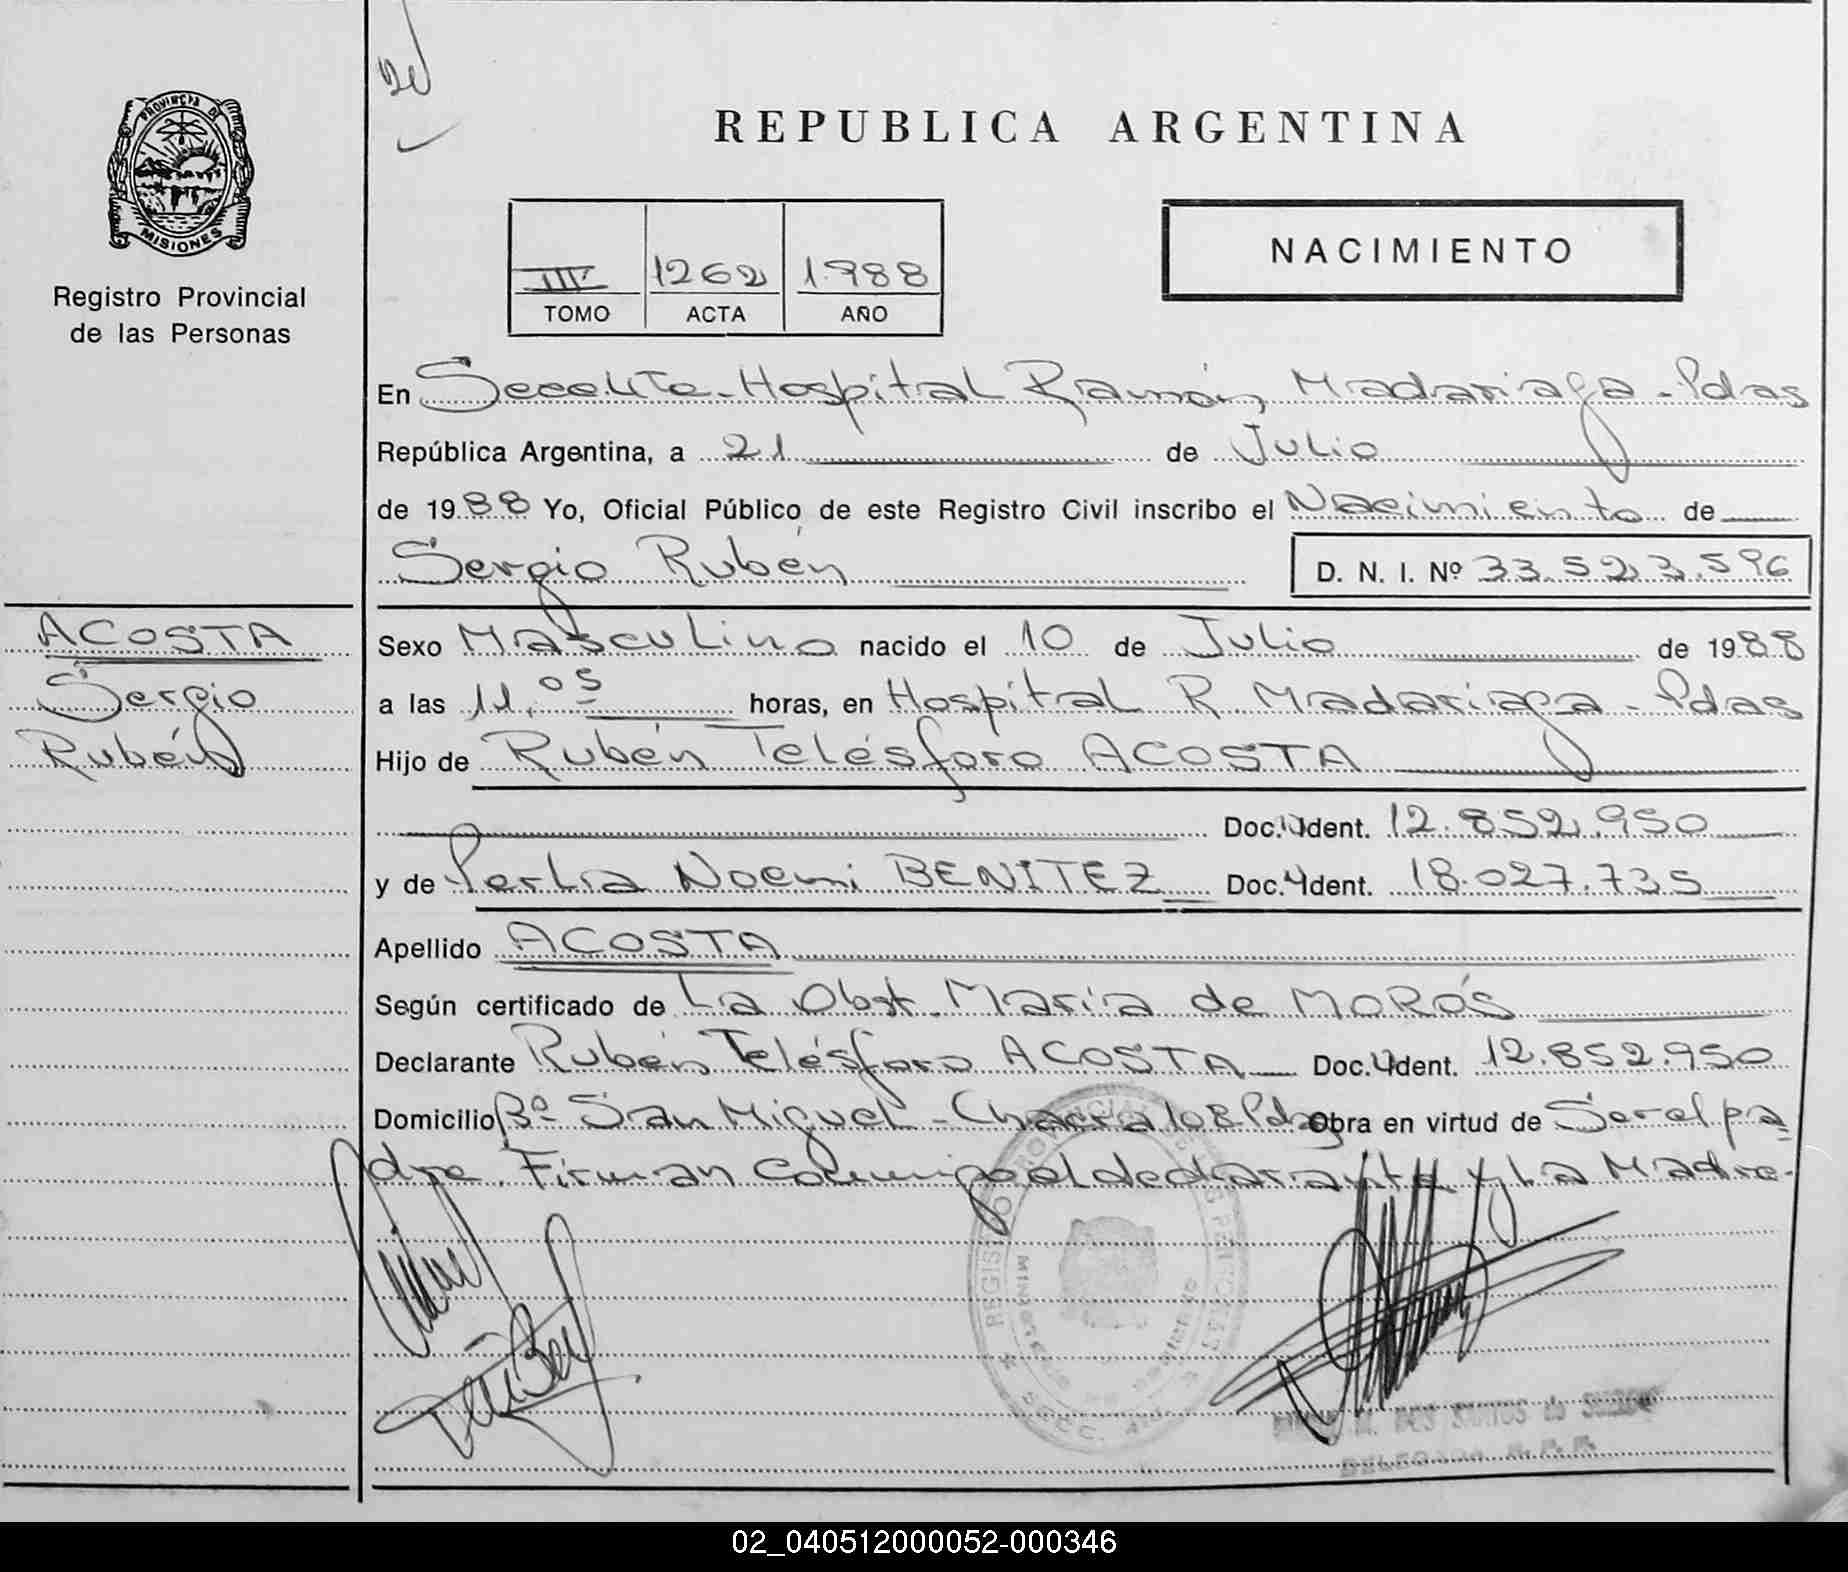 PROVINCIA DE
MISIONES
Registro Provincial
de las Personas
REPUBLICA ARGENTINA
NACIMIENTO
III 1262 1.988
TOMO ACTA AÑO
En Secc. 4ta. Hospital Ramón Madariaga - Pdas
República Argentina, a 21 de Julio
de 1988 Yo, Oficial Público de este Registro Civil inscribo el Nacimiento de
Sergio Rubén
D. N. I. Nº 33.523.596
ACOSTA
Sergio
Rubén
Sexo Masculino nacido el 10 de Julio de 1988
a las 11,05 horas, en Hospital R. Madariaga - Pdas
Hijo de Rubén Telésforo ACOSTA
Doc. Ident. 12.852.950
y de Perlia Noemi BENITEZ Doc. Ident. 18.027.735
Apellido ACOSTA
Según certificado de La Obst. María de MOROS
Declarante Rubén Telésforo ACOSTA Doc. Ident. 12.852.950
Domicilio Bº San Miguel - Chacra 108 Pdas Obra en virtud de Ser el pa
dre. Firman conmigo el declarante y La Madre.
REGISTRO PROVINCIAL DE LAS PERSONAS
DOS SANTOS de
DELEGADA R. P. P.
02_040512000052-000346